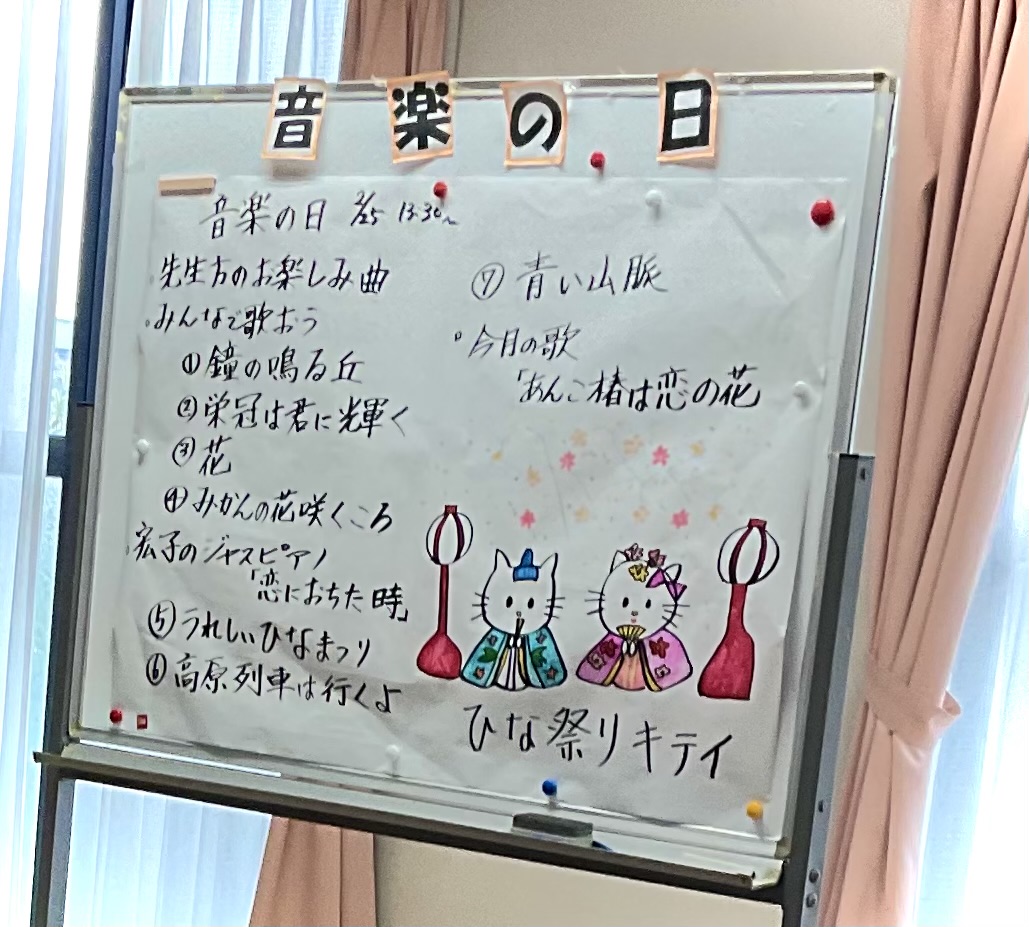 音楽の日
音楽の日 2/25 13:30~
先生方のお楽しみ曲
。みんなで歌おう
①鐘の鳴る丘
②栄冠は君に輝く
③花
④みかんの花咲くころ
宏子のジャズピアノ
「恋におちた時」
⑤うれしいひなまつり
⑥高原列車は行くよ
⑦青い山脈
。今月の歌
「あんこ椿は恋の花
ひな祭りキティ